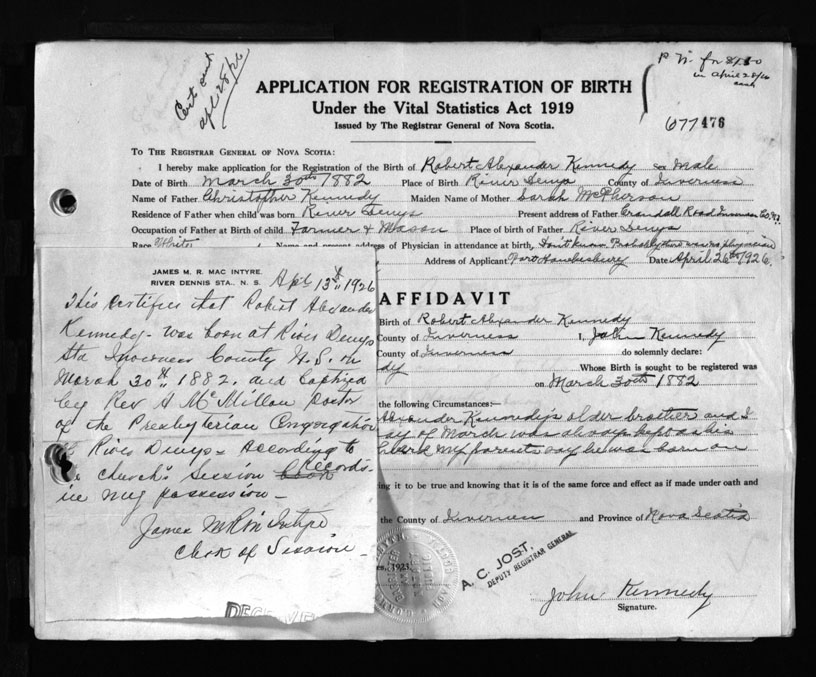 Cert out
Apl 28/26
P. N. for
in April 28/26
APPLICATION FOR REGISTRATION OF BIRTH
Under the Vital Statistics Act 1919
Issued by The Registrar General of Nova Scotia.
677476
TO THE REGISTRAR GENERAL OF NOVA SCOTIA:
I hereby make application for the Registration of the Birth of Robert Alexander Kennedy a Male
Date of Birth March 30th 1882 Place of Birth River Denys County of Inverness
Name of Father Christopher Kennedy Maiden Name of Mother Sarah McPherson
Residence of Father when child was born River Denys Present address of Father Crandall Road Inverness Co. N.S.
Occupation of Father at Birth of child Farmer & Mason Place of birth of Father River Denys
Race White Name and present address of Physician in attendance at birth, Don't know. Probably there was no physician
Address of Applicant Port Hawkesbury Date April 26th 1926
JAMES M. R. MAC INTYRE.
RIVER DENNIS STA., N. S.
Apl 13th 1926
This certifies that Robert Alexander
Kennedy - was born at River Denys
Sta Inverness County N.S. on
March 30th 1882. and baptized
by Rev A McMillan Pastor
of the Presbyterian Congregation
River Denys - According to
Church's Session Book Records
in my possession -
James McRin Intyre
Clerk of Session -
AFFIDAVIT
Birth of Robert Alexander Kennedy
County of Inverness I, John Kennedy
County of Inverness do solemnly declare:
dy Whose Birth is sought to be registered was
on March 30th 1882
the following Circumstances:
Alexander Kennedy's older brother and I
day of March was always kept as his
my parents say he was born on
ing it to be true and knowing that it is of the same force and effect as if made under oath and
the County of Inverness and Province of Nova Scotia
A. C. JOST.
DEPUTY REGISTRAR GENERAL
John Kennedy
Signature.